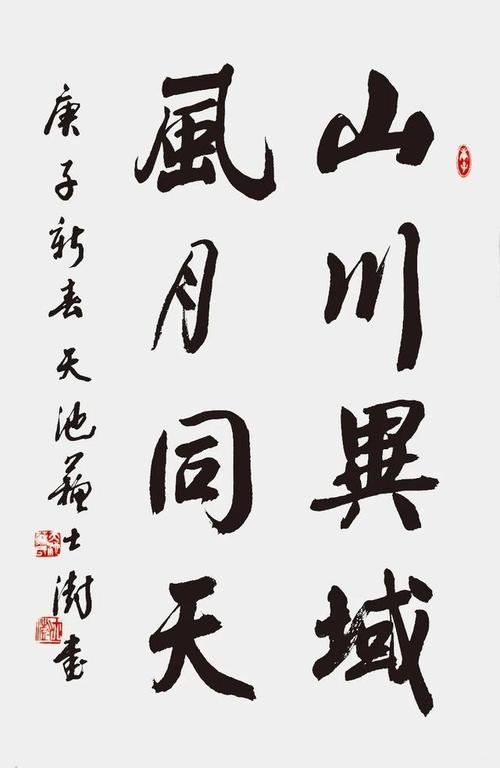 山川異域
風月同天
庚子新春天池蘇士澍書